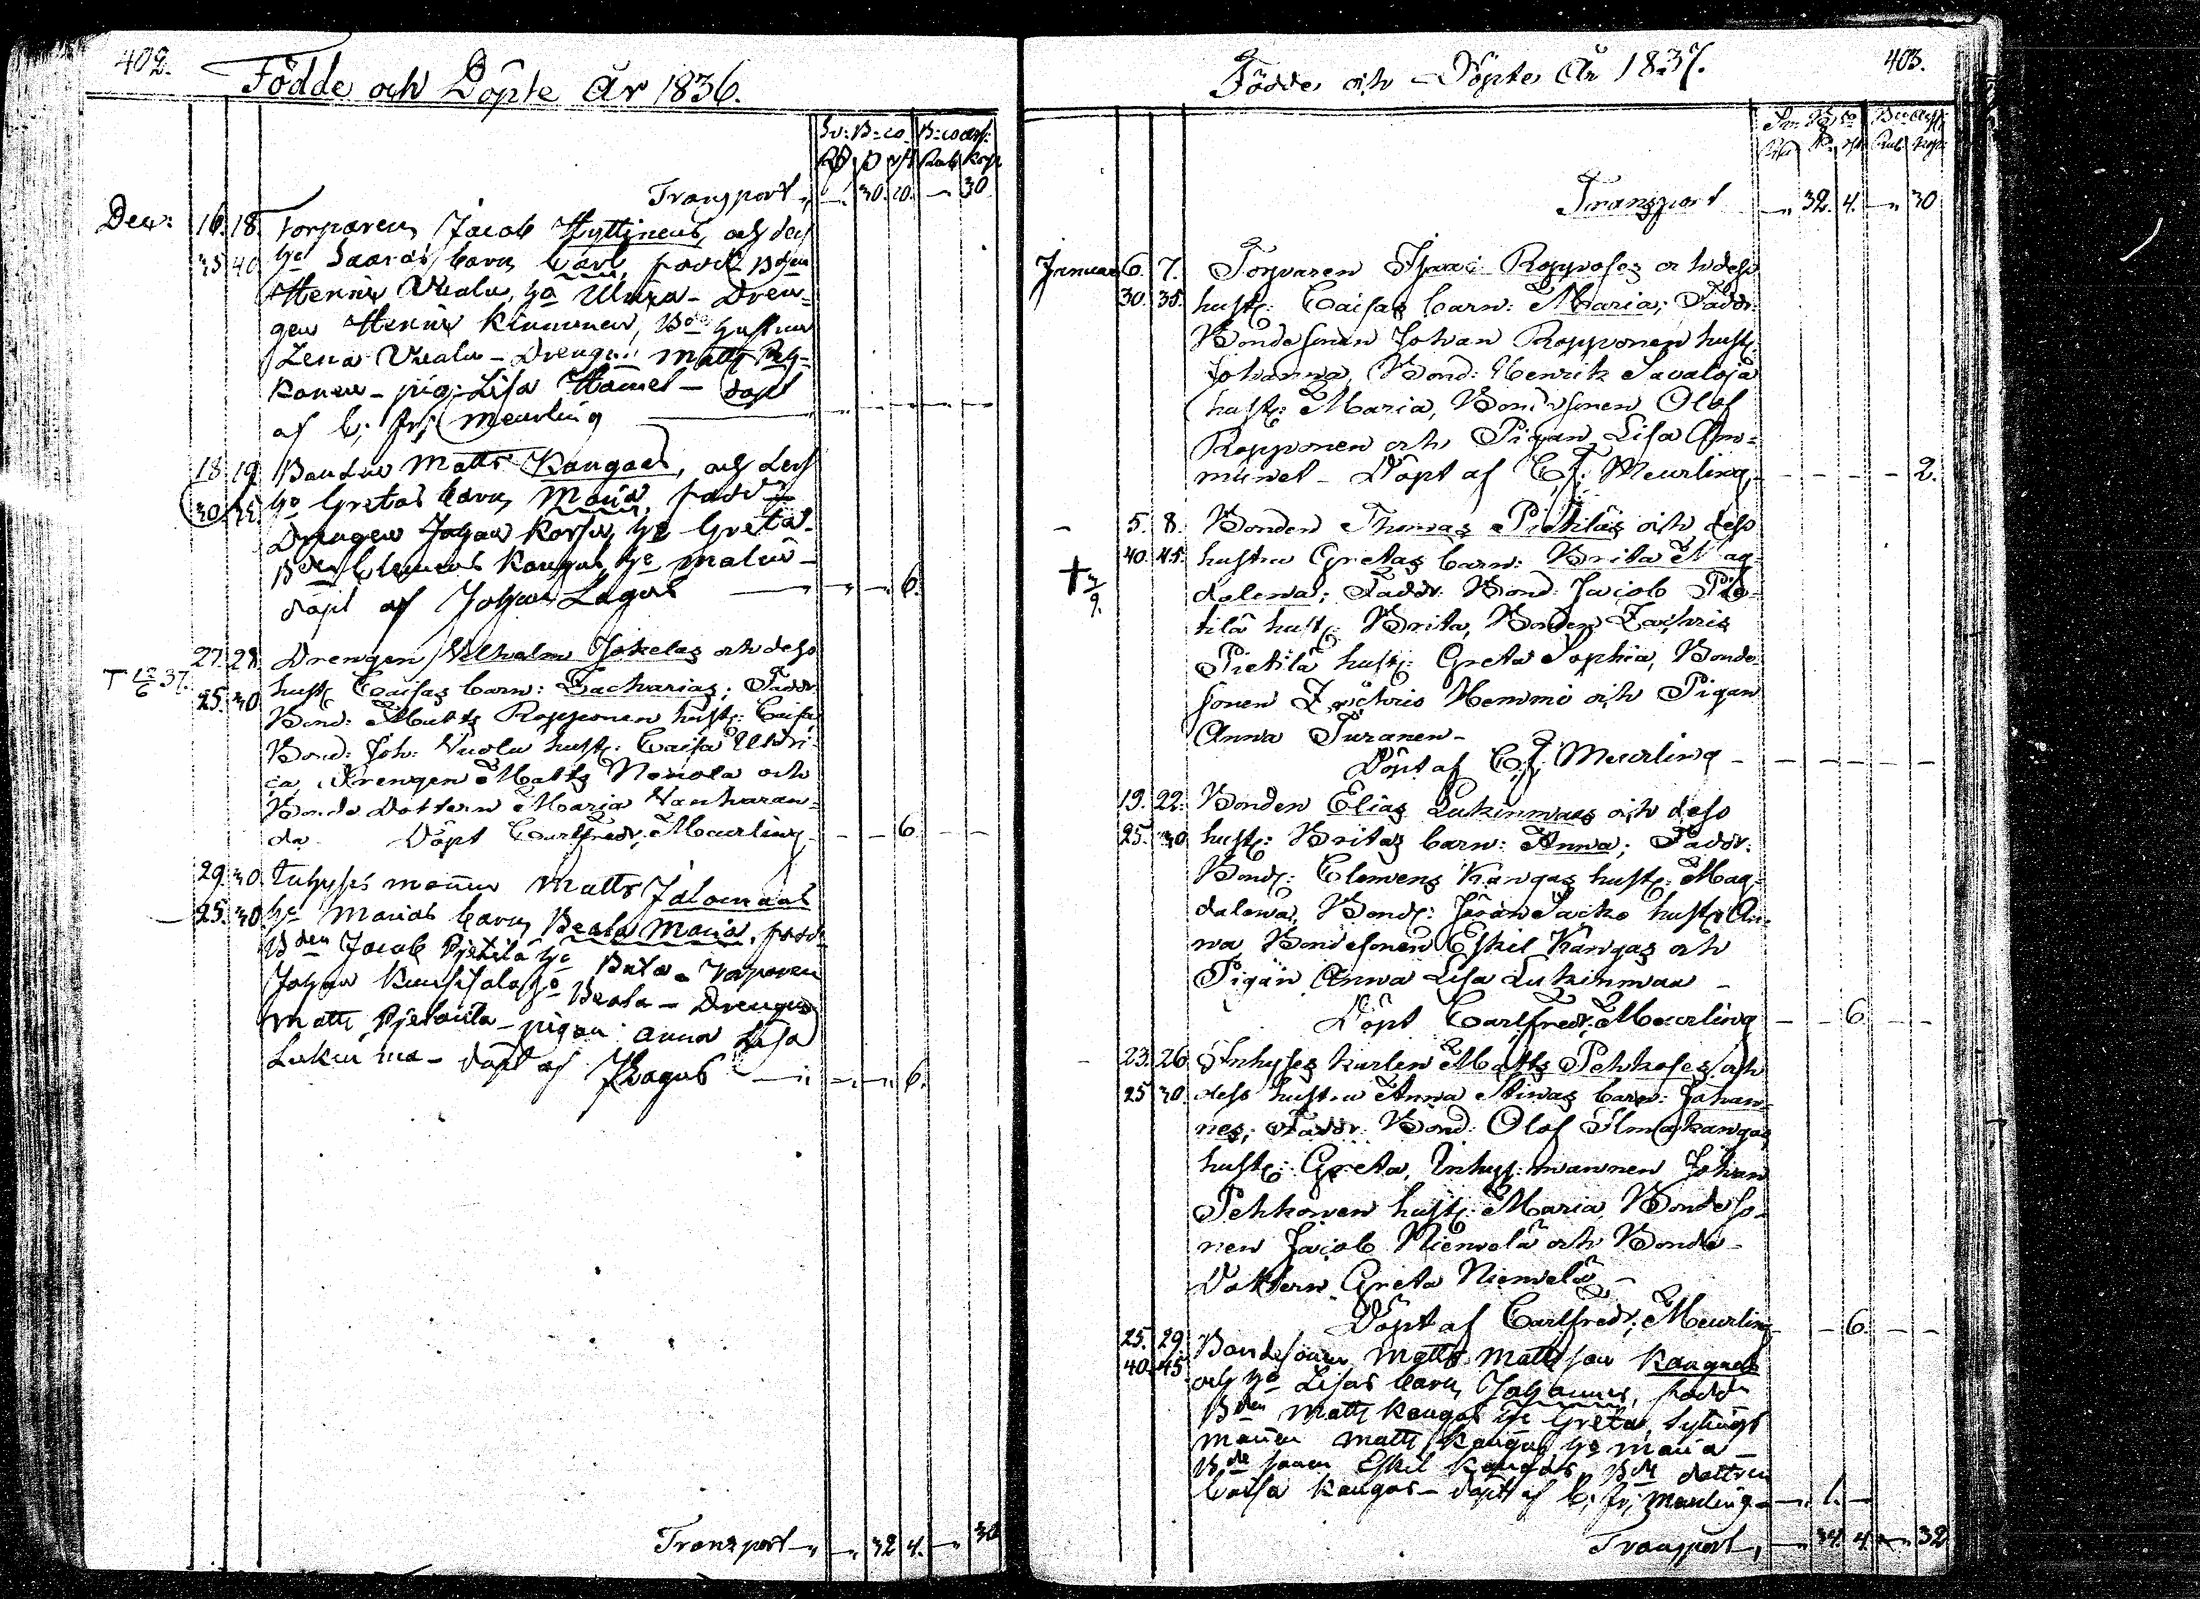 402.
Födde och Döpte år 1836.
Sv: B:co. B:co ass:
Rd ß rst Rub. Kop.
Transport „ — „ 30. 10. — 30
Dec: 16. 18. Torparen Jacob Hyttinens, och dess
35 40 h:s Saaras barn Carl, fadd: B:den
Henric Uralu, h:o Ulrica - Dren-
gen Henric Kinnunen, B:de hustrun
Lena Uralu - Drengen Matts
konen - pig: Lisa Hämel - döpt
af C: Fr: Meurling
18. 19. Bonden Matts Kangas, och dess
30. 35. h:o Gretas barn Maria, fadd:
Drengen Johan Korsu, h:o Greta -
B:den Clemens Kangas, h:o Malin -
döpt af Johan Lagus — „ — „ 6.
27. 28. Drengen Wilhelm Jokelas och dess
† 12/6 37.
25. 30 hust: Caisas barn: Zacharias; Fadd:
Bond: Matts Ropponen hust: Caisa
Bond: Joh: Vuolu hust: Caisa Ulri-
ca, Drengen Matts Nenola och
Bonde Dottern Maria Vanharan-
da - Döpt Carlfredr: Meurling - — — 6. — —
29. 30. Inhyses mannen Matts Jalomaas
25. 30. h:o Marias barn Beata Maria, fadd:
B:den Jacob Pjetilä h:o Brita - Torparen
Johan h:o Beata - Drengen
Matts - pigan Anna Lisa
Lukinma - döpt af JLagus — „ — „ 6.
Transport — „ — „ 32 4. — „ 30
Födde och Döpte År 1837.
403.
Transport — „ 32. 4. — „ 30
Januari 6. 7. Torparen Isaac Ropposes och dess
30. 35. hust: Caisas barn: Maria; Fadd:
Bondesonen Johan Ropponen hust:
Johanna, Bond: Henrik Savaloja
hust: Maria, Bondesonen Olof
Ropponen och Pigan Lisa Am-
münet - Döpt af C.F. Meurling, - - - - 2.
— 5. 8. Bonden Thomas Pietiläs och dess
40. 45. hustru Gretas barn: Brita Mag-
† 3/9.
dalena; Fadd: Bond: Jacob Pie-
tilä hust: Brita, Bonden Zachris
Pietilä hust: Greta Sophia, Bonde-
sonen Zachris Hemmi och Pigan
Anna Turanen -
Döpt af C.F. Meurling - - - - - -
19. 22. Bonden Elias Lukinmaas och dess
25. 30 hust: Britas barn: Anna; Fadd:
Bond: Clemens Kangas hust: Mag-
dalena, Bond: Jöran Jacko hust: An-
na Bondesonen Eskil Kangas och
Pigan Anna Lisa Lukinmaa -
Döpt Carlfredr: Meurling — - 6. - -
— 23. 26. Inhyses karlen Matts Pehkoses och
25 30. dess hustru Anna Stinas barn: Johan-
nes; Fadd: Bond: Olof Ilmakangas
hust: Greta, Inhys: mannen Johan
Pehkonen hust: Maria, Bondeso-
nen Jacob Niemelä och Bonde-
Dottern Greta Niemelä -
Döpt af Carlfredr: Meurling - - 6. - -
25. 29. Bondsonen Matts Mattsson Kangas
40. 45. och h:o Lisas barn Johannes, fadd:
B:den Matts Kangas h:o Greta, Sytnings
mannen Matts Kangas h:o Maria -
B:de sonen Eskil Kangas, B:de dottren
Caisa Kangas - döpt af C. Fr: Meurling — „ 1. —
Transport, — „ 34. 4. — „ 32